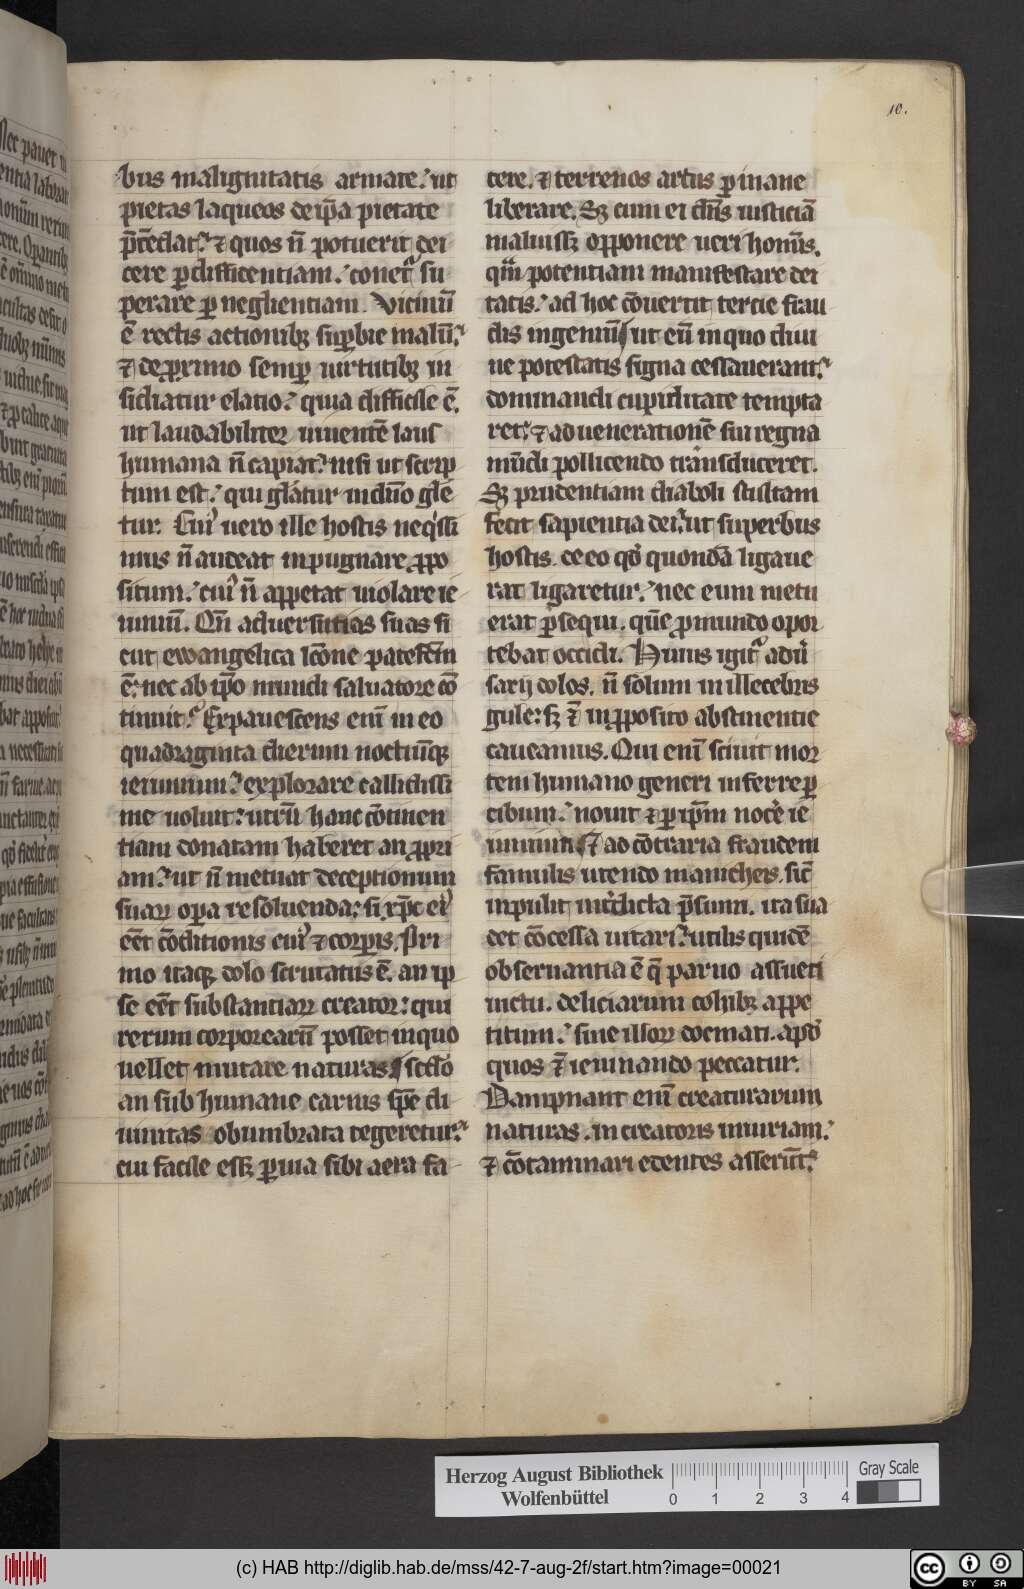 10.
bus malignitatis armare. ut
pietas laqueos de ip̄a pietate
p̄tēdat. ⁊ quos n̄ potuerit dei
cere ꝑ diffidentiam. conet᷑ su
perare ꝑ neglientiam. Vicinū
ē rectis actionibꝫ suꝑbie malū.
⁊ de ꝓximo semꝑ uirtutibꝫ in
sidiatur elatio. quia difficile ē.
ut laudabiliter uiuentē laus
humana n̄ capiat. nisi ut scrip
tum est. qui gl̄atur in dn̄o gl̄e
tur. Cui᷒ uero ille hostis neq̇ssi
mus n̄ audeat inpugnare ꝓpo
situm. cui᷒ n̄ appetat uiolare ie
iuniū. Qn̄ aduersutias suas si
cut ewangelica lc̄one patefc̄m
ē. nec ab ip̄o mundi saluatore cō
tinuit. Expauescens eni᷒ in eo
quadraginta dierum noctiūqꝫ
ieiunium. explorare callidissi
me uoluit. utrū hanc cōtinen
tiam donatam haberet an ꝓpri
am. ut n̄ metuat deceptionum
suaꝝ oꝑa resoluenda. si xp̄c ei᷒
eēt cōditionis cui᷒ ⁊ corꝑis. Pri
mo itaqꝫ dolo scrutatus ē. an ip
se eēt substantiaꝝ creator. qui
rerum corporearū posset in quo
uellet mutare naturas. scd̄o
an sub humane carnis sp̄e di
uinitas obumbrata tegeretur.
cui facile essꝫ ꝑuia sibi aera fa
cere. ⁊ terrenos artus ꝑ inane
liberare. Sꝫ cum ei dn̄s iusticiā
maluissꝫ opponere ueri hoīs.
qm̄ potentiam manifestare dei
tatis. ad hoc cōuertit tercie frau
dis ingeniū. ut eū in quo diui
ne potestatis signa cessauerant.
dominandi cupiditate tempta
ret. ⁊ ad uenerationē sui regna
mūdi pollicendo transduceret.
Sꝫ prudentiam diaboli stultam
fecit sapientia dei. ut superbus
hostis. de eo qd̄ quondā ligaue
rat ligaretur. nec eum metu
erat ꝑsequi. quē ꝓ mundo opor
tebat occidi. Huius igit᷑ aduer
sarij dolos. n̄ solum in illecebris
gule. sꝫ ⁊ in ꝓposito abstinentie
caueamus. Qui eni᷒ sciuit mor
tem humano generi inferre ꝑ
cibum. nouit ⁊ ꝑ ip̄m nocere ie
iunium. ⁊ ad cōtraria fraudem
famulis utendo manicheis. sic̄
inpulit int̓dicta p̄sumi. ita sua
det cōcessa uitari. utilis quidē
obseruantia ē q̄ paruo assueti
uictu. deliciarum cohibꝫ appe
titum. sine illoꝝ docmati. apd̄
quos ⁊ ieiunando peccatur.
Dampnant eni᷒ creaturarum
naturas. in creatoris iniuriam.
⁊ cōtaminari edentes asserūt.
Herzog August Bibliothek
Wolfenbüttel
0 1 2 3 4
Gray Scale
(c) HAB http://diglib.hab.de/mss/42-7-aug-2f/start.htm?image=00021
cc BY SA